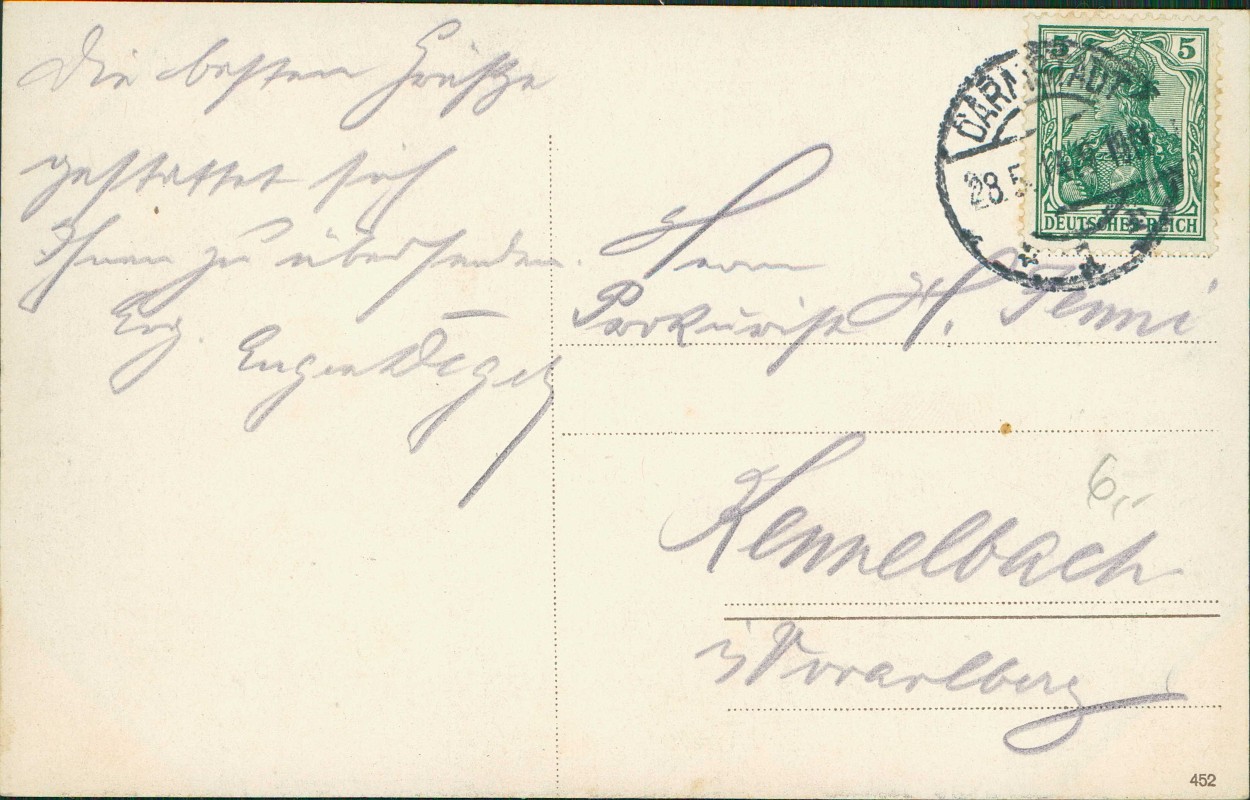 Die besten Grüße
gestattet sich
Ihnen zu übersenden.
Erg. Eugen
Herrn
Prokurist H. Jenni
Kennelbach
in Vorarlberg
6,-
5 5
DEUTSCHES REICH
DARMSTADT
28.5.
452